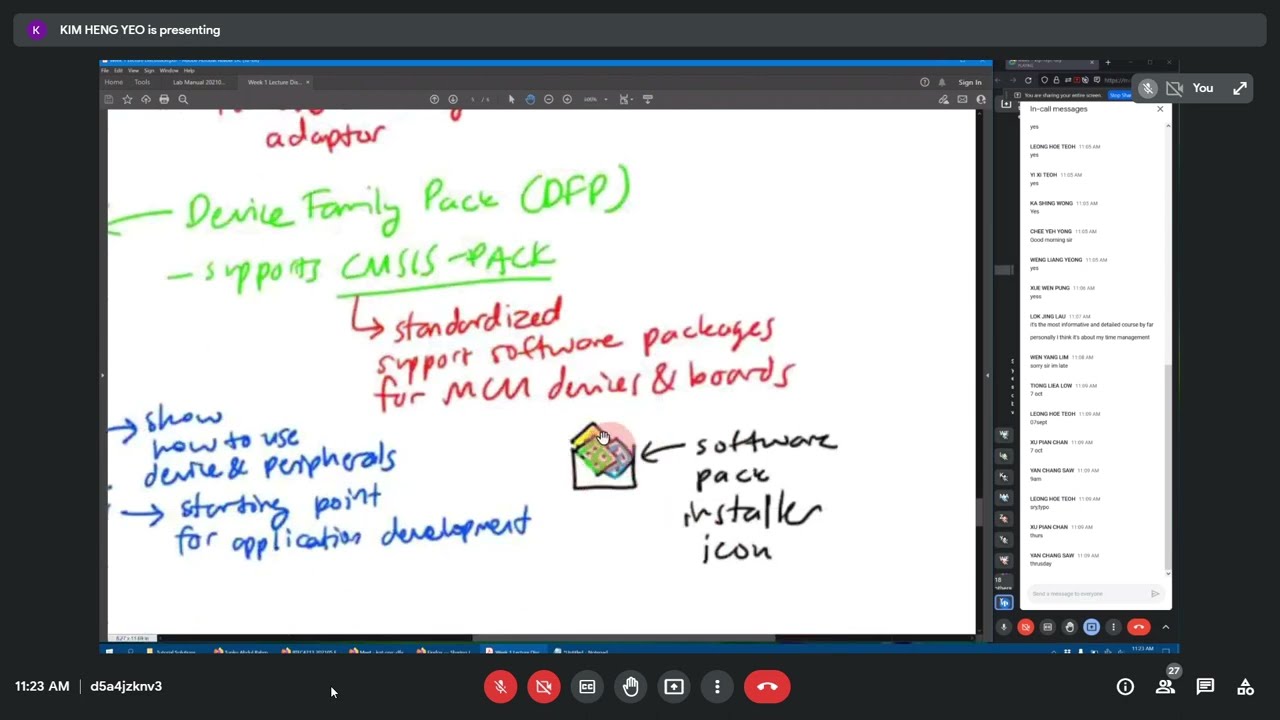 K KIM HENG YEO is presenting
File Edit View Sign Window Help
Home Tools Lab Manual 20210... Week 1 Lecture Dis... ×
Sign In
adaptor
← Device Family Pack (DFP)
- supports CMSIS-PACK
↳ standardized
support software packages
for MCU devices & boards
→ show
how to use
device & peripherals
→ starting point
for application development
← software
pack
installer
icon
You are sharing your entire screen.
You
In-call messages
yes
LEONG HOE TEOH 11:05 AM
yes
YI XI TEOH 11:05 AM
yes
KA SHING WONG 11:05 AM
Yes
CHEE YEH YONG 11:05 AM
Good morning sir
WENG LIANG YEONG 11:05 AM
yes
XUE WEN PUNG 11:06 AM
yess
LOK JING LAU 11:07 AM
it's the most informative and detailed course by far
personally I think it's about my time management
WEN YANG LIM 11:08 AM
sorry sir im late
TIONG LIEA LOW 11:09 AM
7 oct
LEONG HOE TEOH 11:09 AM
07sept
XU PIAN CHAN 11:09 AM
7 oct
YAN CHANG SAW 11:09 AM
9am
LEONG HOE TEOH 11:09 AM
sry,typo
XU PIAN CHAN 11:09 AM
thurs
YAN CHANG SAW 11:09 AM
thrusday
Send a message to everyone
11:23 AM
11:23 AM d5a4jzknv3
27